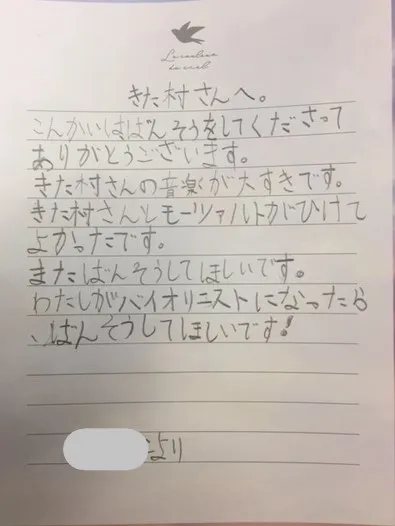 きた村さんへ。
こんかいはばんそうをしてくださって
ありがとうございます。
きた村さんの音楽が大すきです。
きた村さんとモーツァルトがひけて
よかったです。
またばんそうしてほしいです。
わたしがバイオリニストになったら
、ばんそうしてほしいです!
より